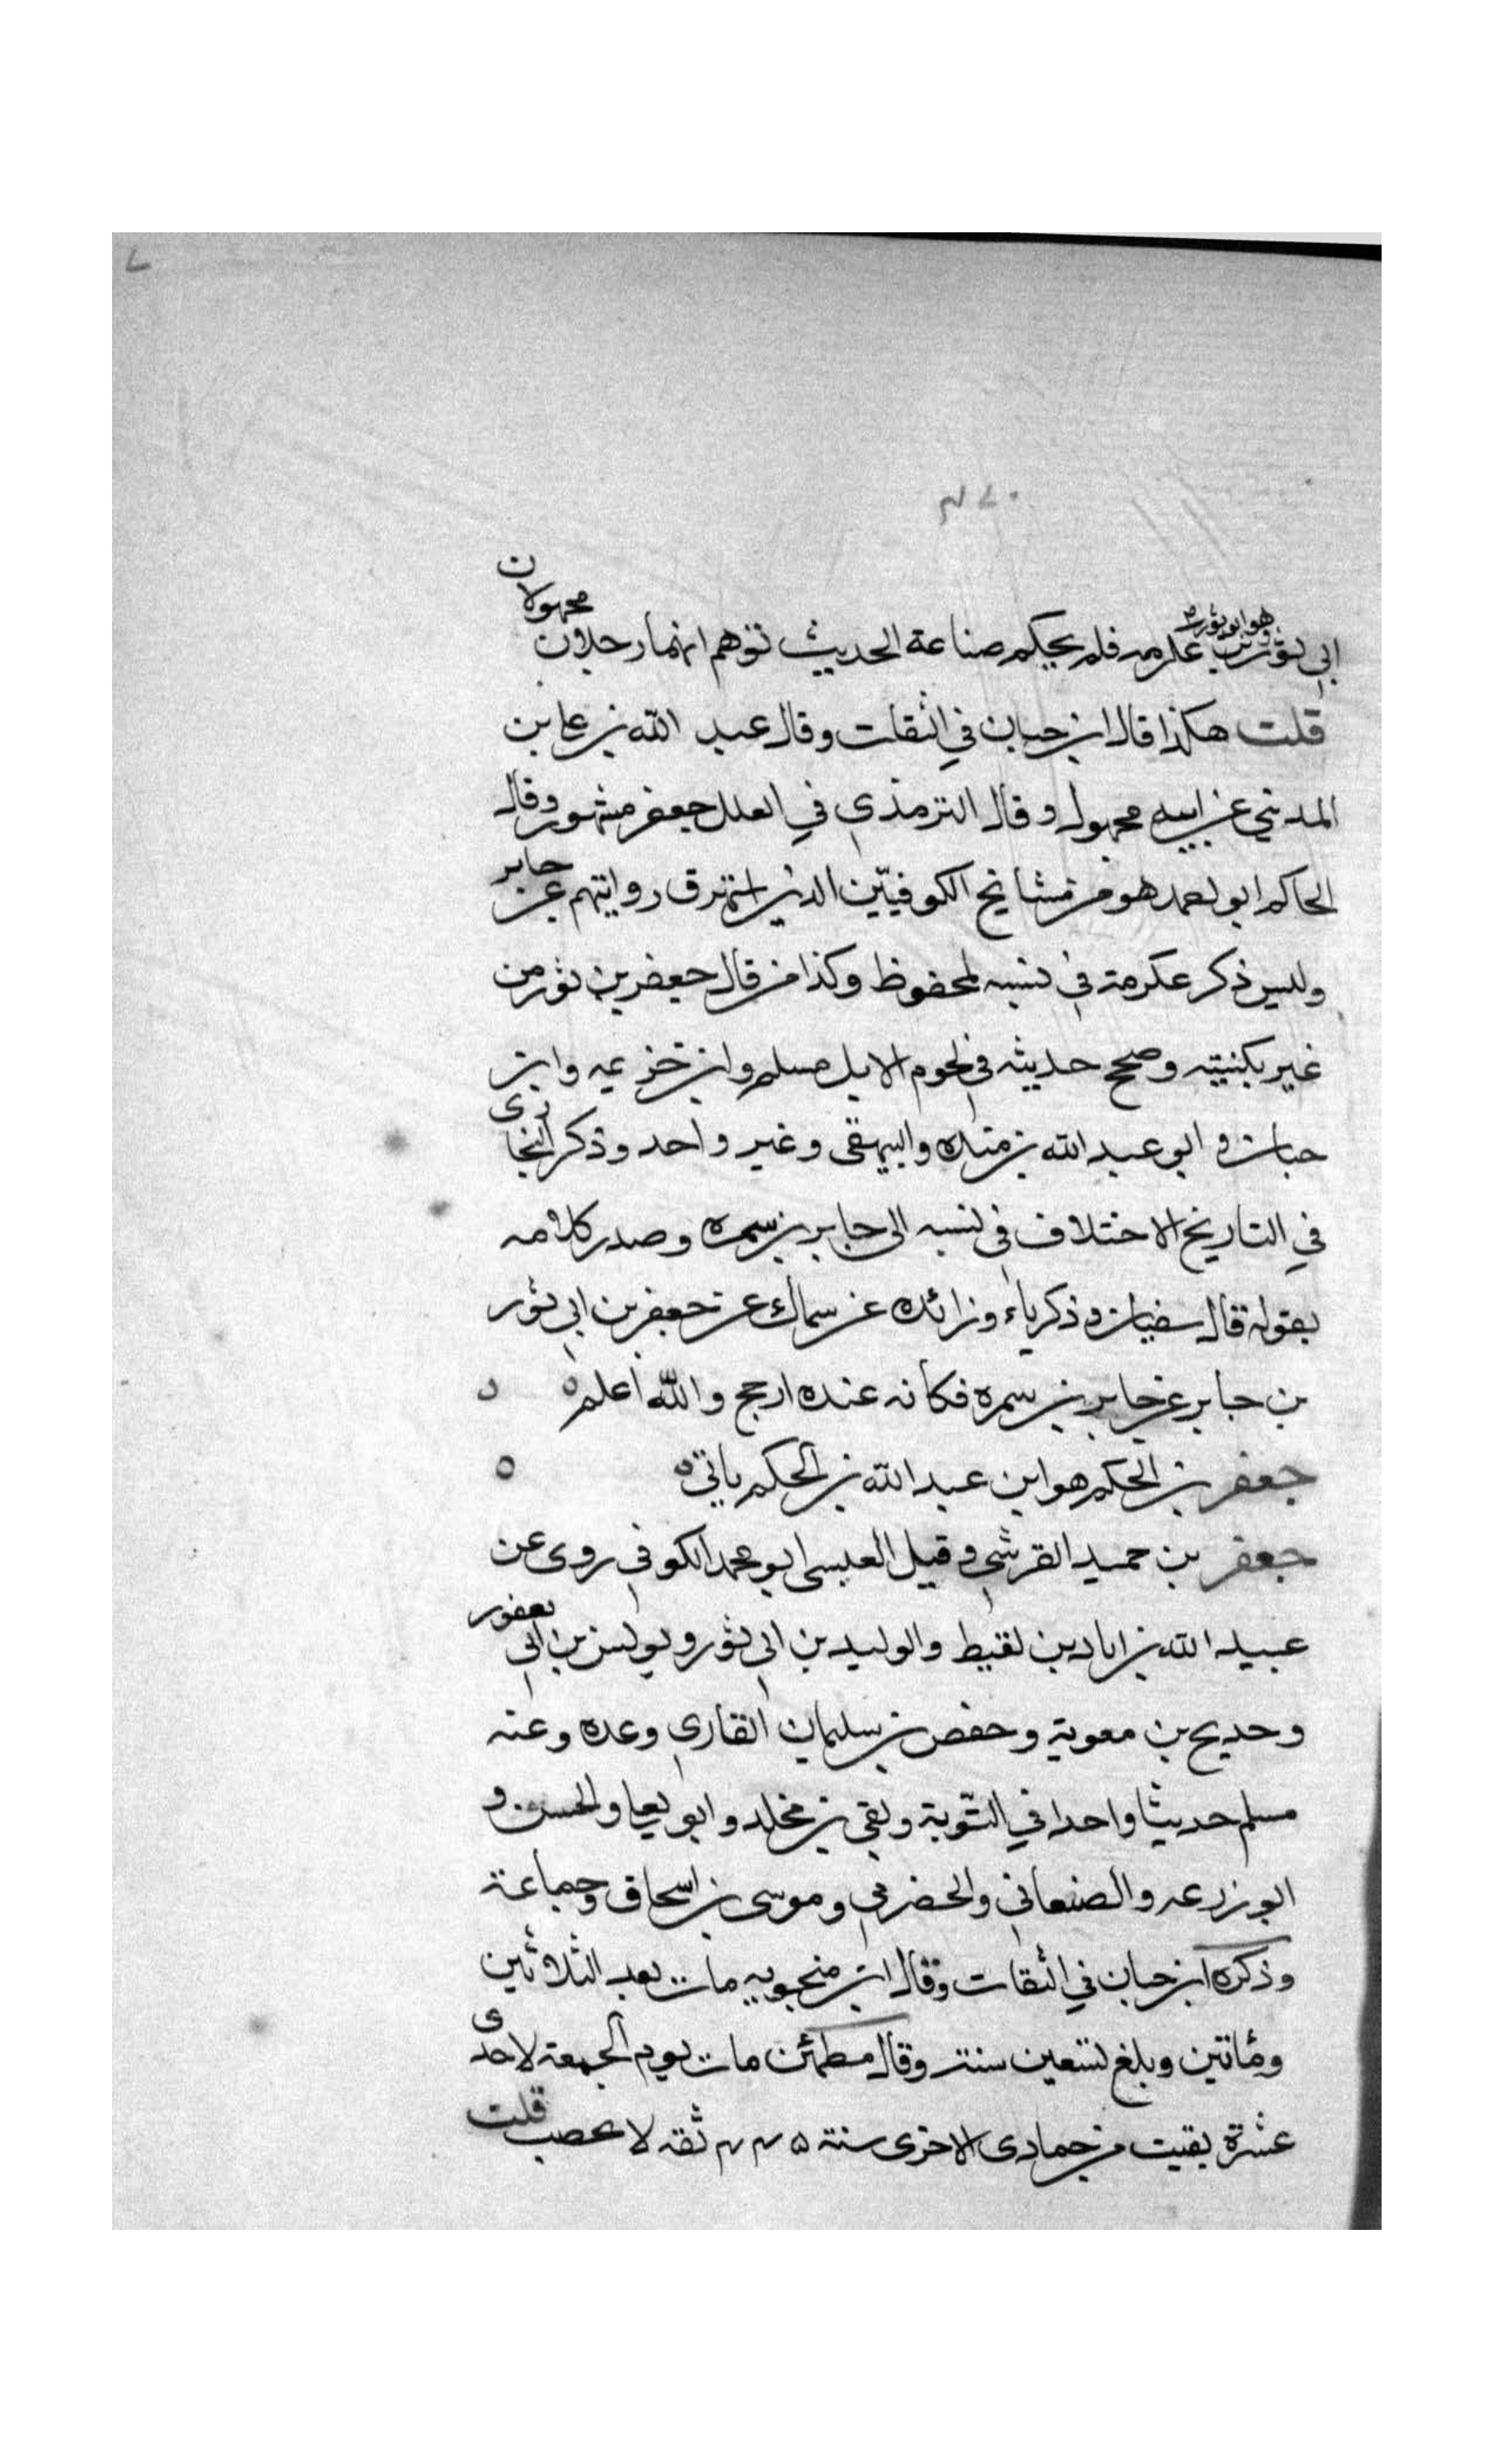 ابي ثور بن عكرمه فلم يحكم صناعة الحديث توهم انهما رجلان مجهولان
هو ابو ثور
قلت هكذا قال ابن حبان في الثقات وقال عبد الله بن علي بن
المديني عن ابيه مجهول وقال الترمذي في العلل جعفر مشهور وقال
الحاكم ابو احمد هو من مشايخ الكوفيّين الذين اشتهرت روايتهم عن جابر
وليس ذكر عكرمة في نسبه لمحفوظ وكذا من قال جعفر بن ثور من
غير بكنيته وصحح حديثه في لحوم الابل مسلم وابن خزيمه وابن
حبان و ابو عبد الله بن منده والبيهقي وغير واحد وذكر البخاري
في التاريخ الاختلاف في نسبه الى جابر بن سمره وصدر كلامه
بقوله قال سفيان و ذكرياء وزائده عن سماك عن جعفر بن ابي ثور
بن جابر عن جابر بن سمره فكأنه عنده ارجح والله أعلم ه
جعفر بن الحكم هو ابن عبد الله بن الحكم ياتي ه
جعفر بن حميد القرشي وقيل العبسى ابو محمد الكوفي روى عن
عبيد الله بن اياد بن لقيط والوليد بن ابي ثور ويونس بن ابي يعفور
وحديج بن معوية وحفص بن سليمان القاري وعده وعنه
مسلم حديثا واحدا في التّوبة وبقي بن مخلد وابو يعلى والحسن و
ابو زرعه والصنعاني والحضرمي وموسى بن اسحاق وجماعة
وذكره ابن حبان في الثقات وقال ابن منجويه مات بعد الثلاثين
ومائتين وبلغ تسعين سنة وقال مطين مات يوم الجمعة لاحدى
عشرة بقيت من جمادى الاخرى سنة ثقه لا يخضب قلت